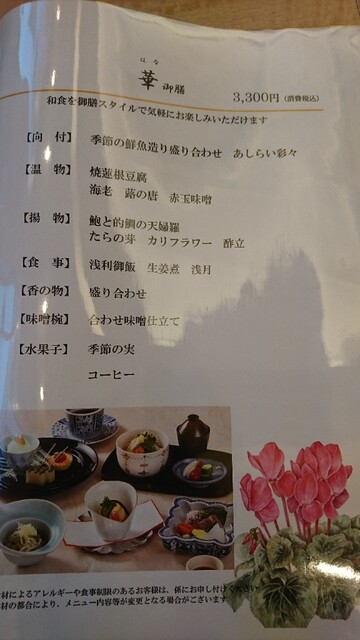 はな
華 御膳 3,300円 (消費税込)
和食を御膳スタイルで気軽にお楽しみいただけます
【向 付】 季節の鮮魚造り盛り合わせ あしらい彩々
【温 物】 焼蓮根豆腐
海老 蕗の唐 赤玉味噌
【揚 物】 鮑と的鯛の天婦羅
たらの芽 カリフラワー 酢立
【食 事】 浅利御飯 生姜煮 浅月
【香の物】 盛り合わせ
【味噌椀】 合わせ味噌仕立て
【水果子】 季節の実
コーヒー
材によるアレルギーや食事制限のあるお客様は、係にお申し付けください
材の都合により、メニュー内容等が変更となる場合がございます